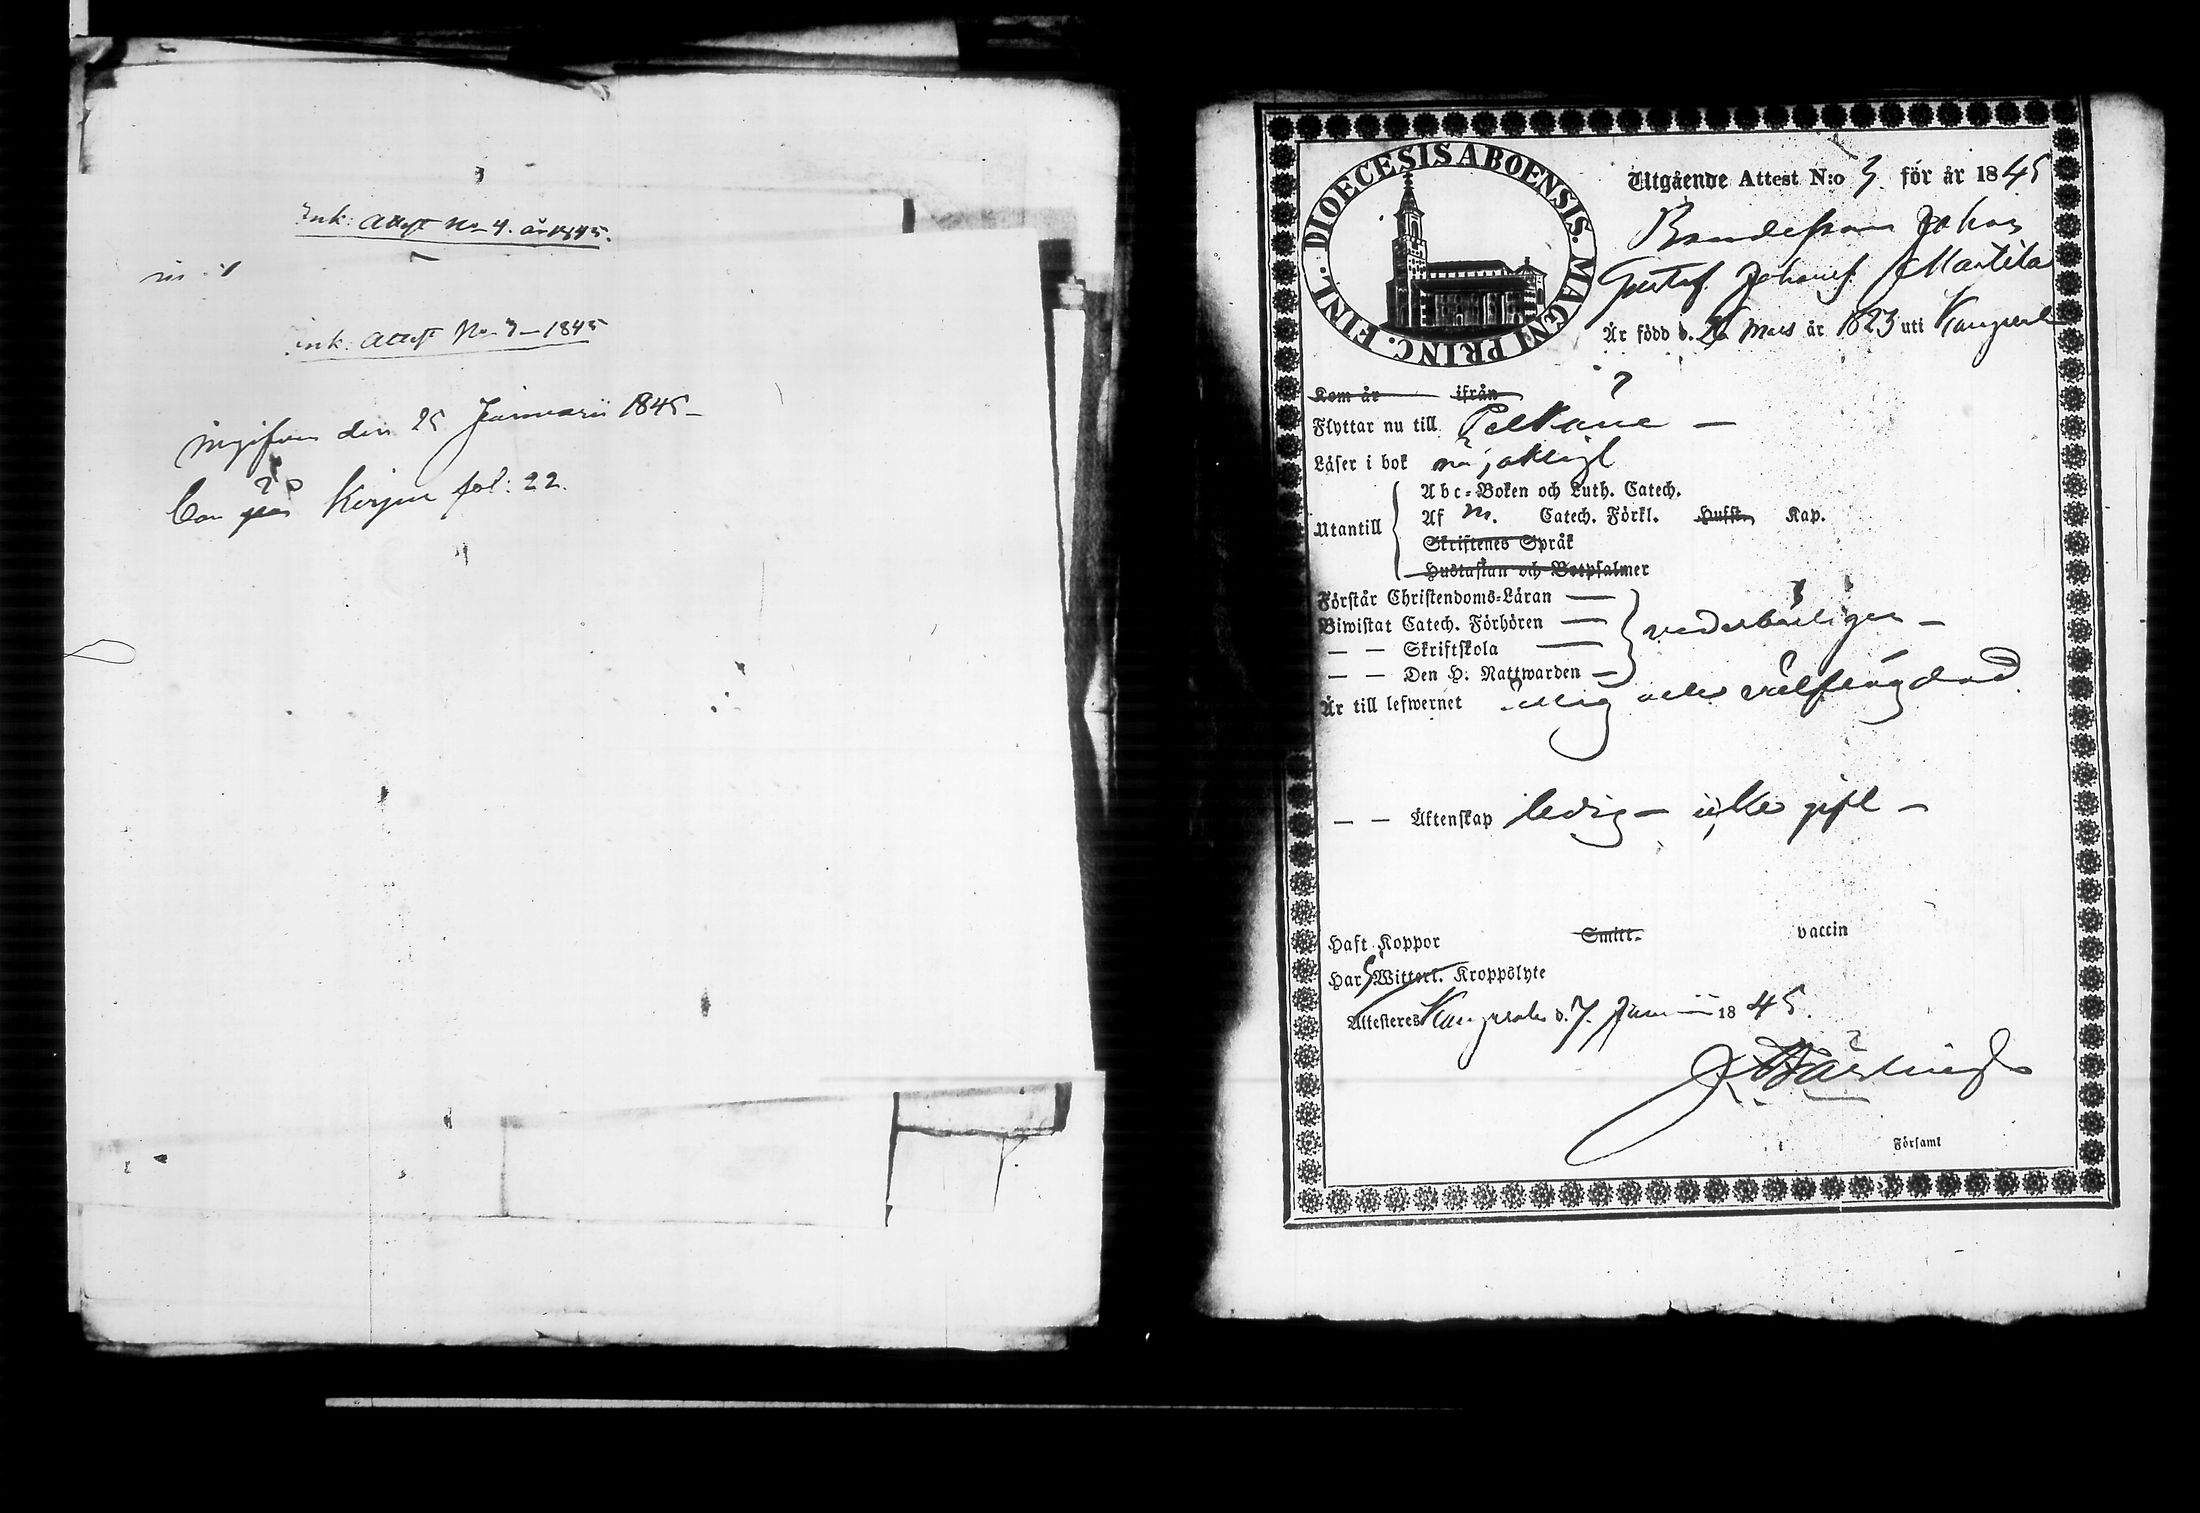 Ink: Attest No 4. år 1845.
Ink: Attest No 7 – 1845
ingifven den 25 Januarii 1845 –
Bor på Kirjun fol: 22.
DIOECESIS ABOENSIS. MAGNI PRINC. FINL.
Utgående Attest N:o 3. för år 1845
Bondesson Johan
Gustaf Johansf. Marttila
Är född d. 26 Mars år 1823 uti Kangasala
Kom år ifrån
Flyttar nu till Pelkäne –
Läser i bok nöjaktigt
Utantill
Abc-Boken och Luth. Catech.
Af m. Catech. Förkl. Hufst. Kap.
Skriftenes Språk
Hustaflan och Botpsalmer
Förstår Christendoms-Läran —
Biwistat Catech. Förhören —
— — Skriftskola —
— — Den H: Nattwarden —
vederbörligen –
Är till lefwernet ärlig och välfrägdad.
— — Äktenskap ledig – icke gift –
Haft Koppor Smitt. vaccin
Har Witterl. Kroppslyte
Attesteres Kangasala d. 7. Januarii 1845.
Församl